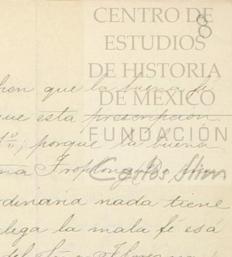 CENTRO DE
8
ESTUDIOS
DE HISTORIA
DE MÉXICO
FUNDACIÓN
Carlos Slim
que la buena fé
que esta prescripcion
porque la buena
na Troplong
ordinaria nada tiene
alega la mala fé esá